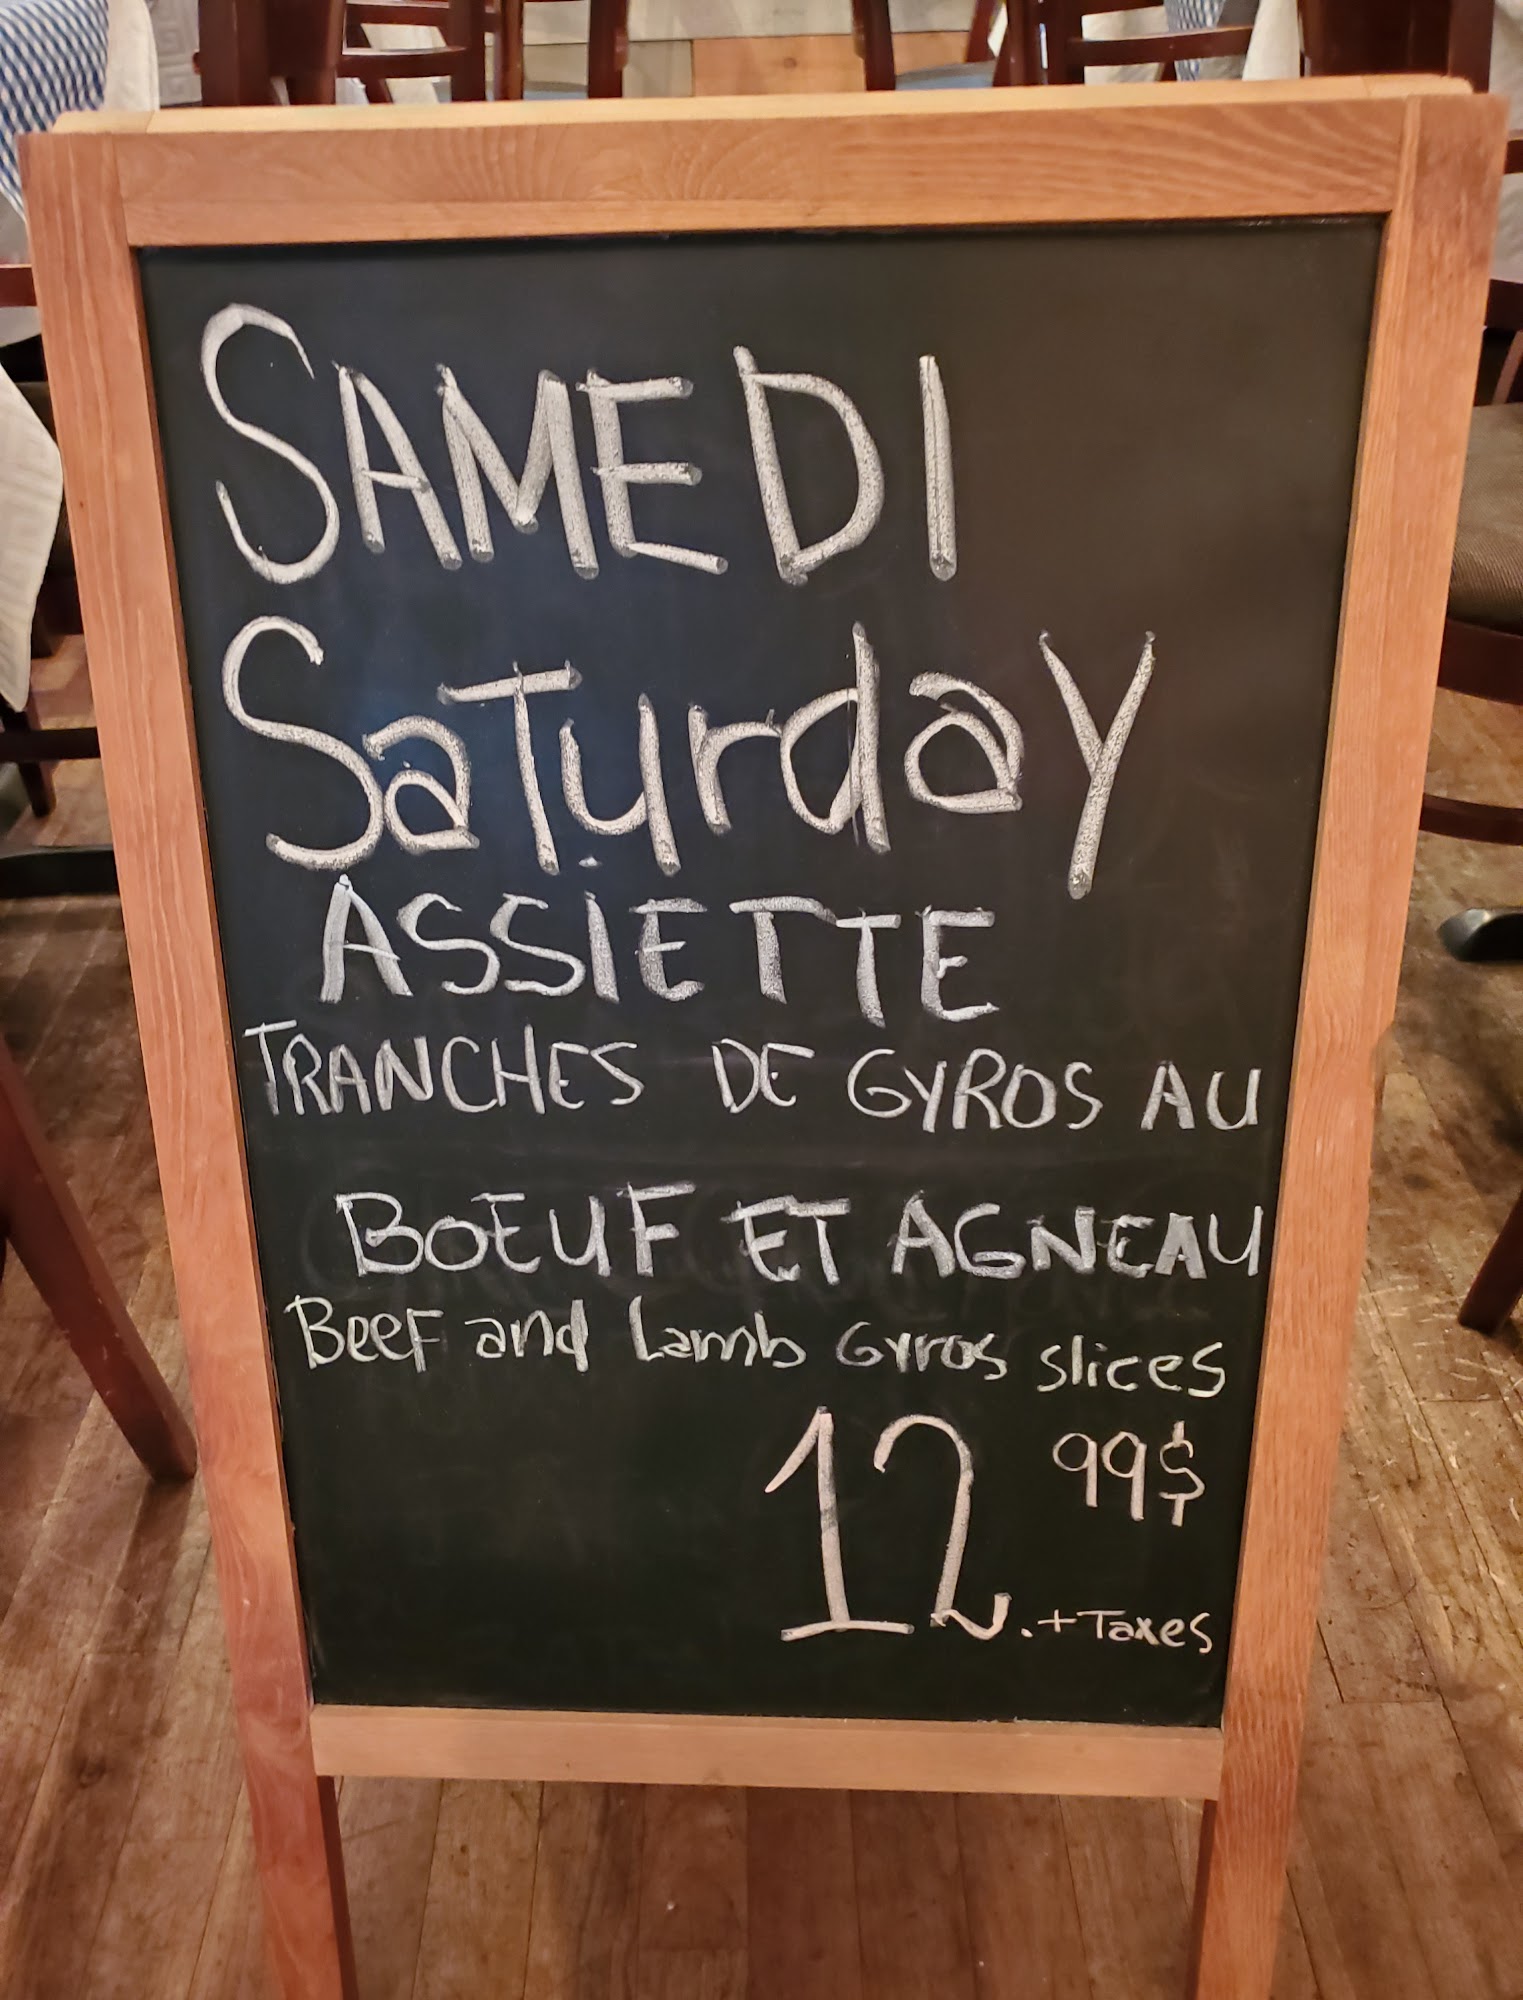 SAMEDI
SaTurday
ASSiETTE
TRANCHES DE GYROS AU
BOEUF ET AGNEAU
BeeF and Lamb Gyros slices
12.99$
+Taxes